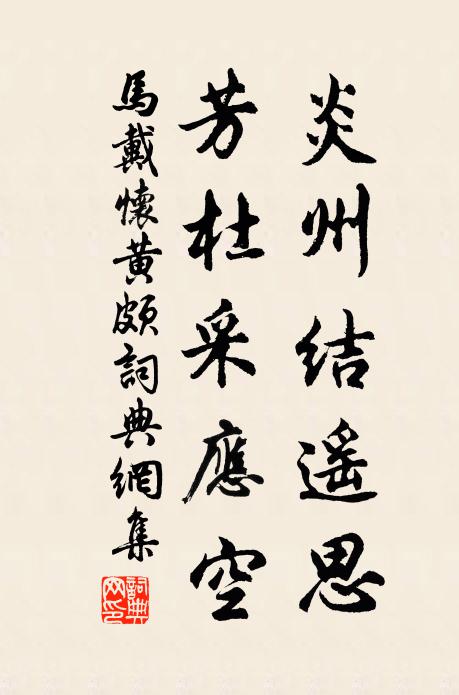 炎州结遥思
芳杜采應空
馬戴懷黄頗詞典網集
詞典